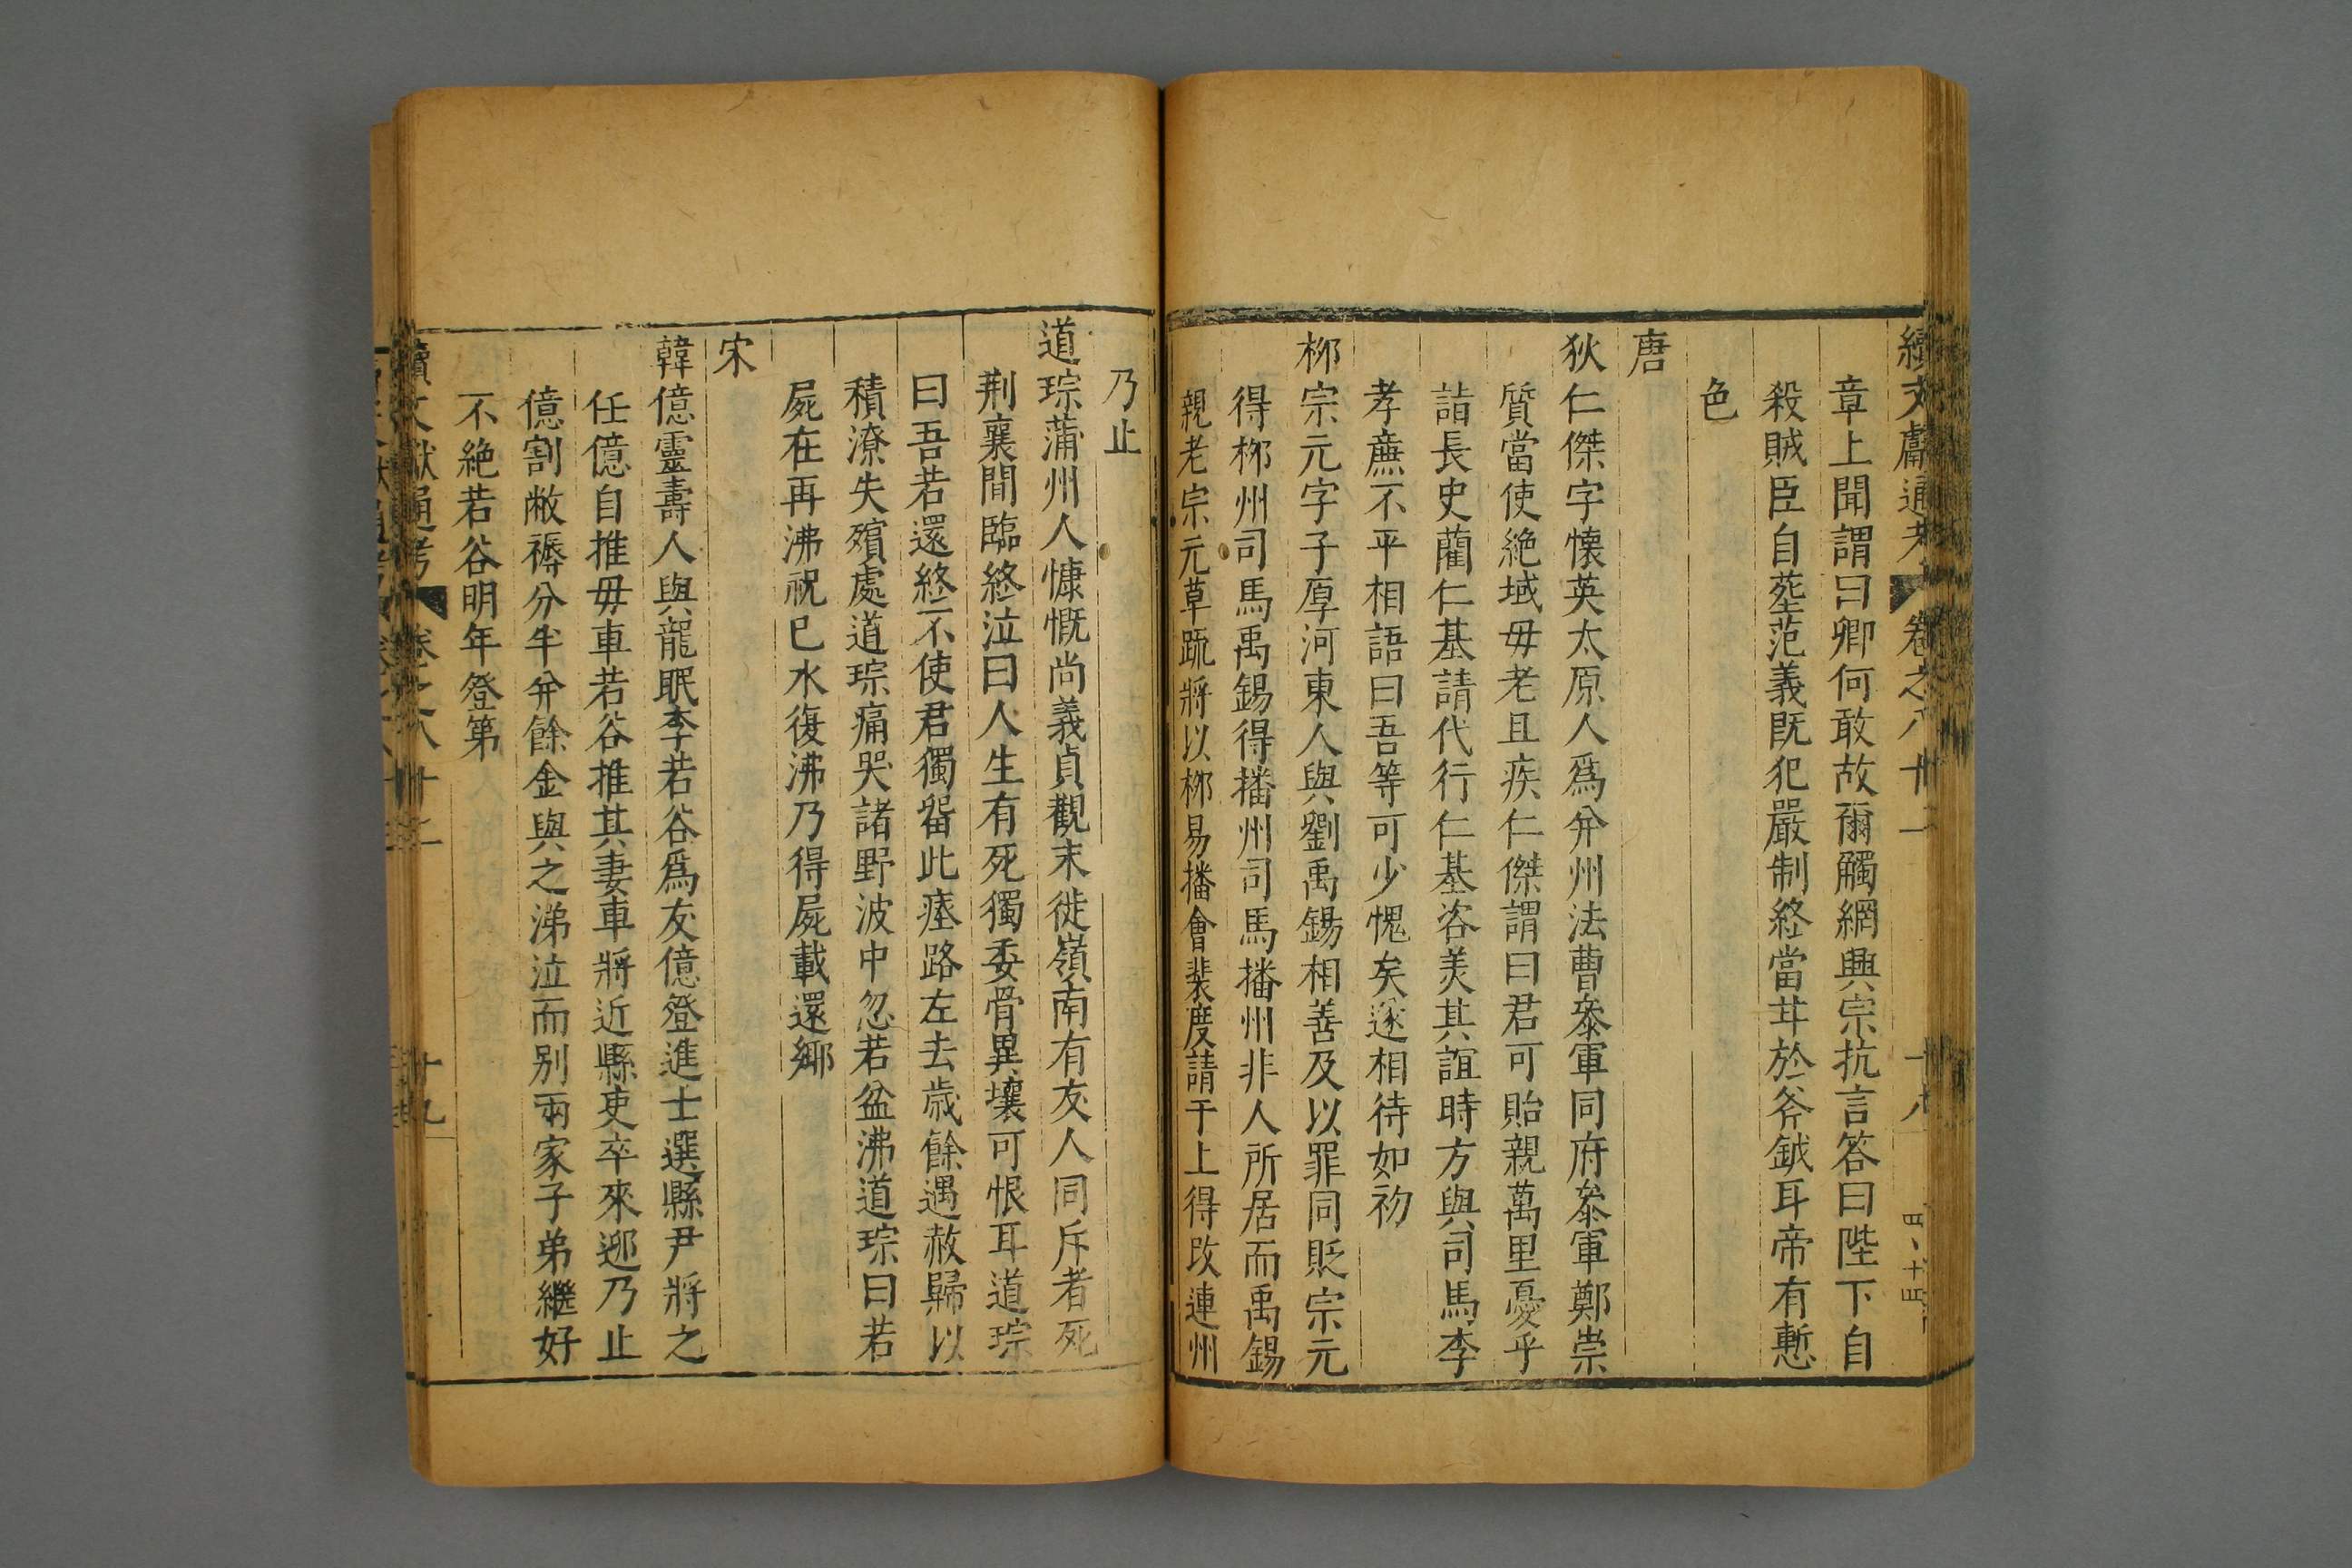 續文獻通考 卷之八十二 十八 四、十四
章上聞謂曰卿何敢故爾觸網興宗抗言答曰陛下自
殺賊臣自塟范義既犯嚴制終當甘於斧鉞耳帝有慙
色
唐
狄仁傑字懷英太原人爲并州法曹叅軍同府叅軍鄭崇
質當使絶域毋老且疾仁傑謂曰君可貽親萬里憂乎
詣長史藺仁基請代行仁基咨美其誼時方與司馬李
孝廉不平相語曰吾等可少愧矣遂相待如初
栁宗元字子厚河東人與劉禹錫相善及以罪同貶宗元
得栁州司馬禹錫得播州司馬播州非人所居而禹錫
親老宗元草疏將以栁易播會裴度請于上得改連州
乃止
道琮蒲州人慷慨尚義貞觀末徙嶺南有友人同斥者死
荆襄間臨終泣曰人生有死獨委骨異壤可恨耳道琮
曰吾若還終不使君獨留此瘞路左去歲餘遇赦歸以
積潦失殯處道琮痛哭諸野波中忽若盆沸道琮曰若
屍在再沸祝已水復沸乃得屍載還鄉
宋
韓億靈壽人與龍眠李若谷爲友億登進士選縣尹將之
任億自推毋車若谷推其妻車將近縣吏卒來迎乃止
億割敝褥分半并餘金與之涕泣而别兩家子弟繼好
不絶若谷明年登第
續文獻通考 卷之八十二 十九